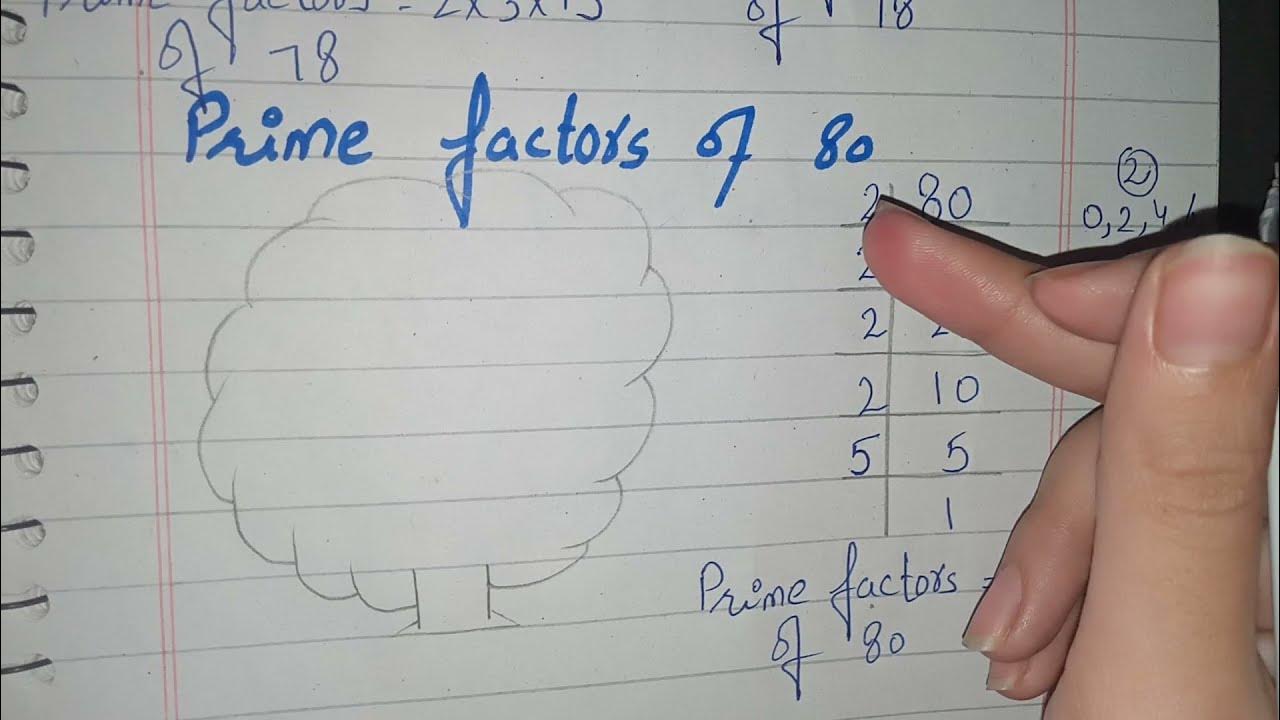 Prime factors = 2x3x13 of 18
of 78
Prime factors of 80
2 80
2
2 2
2 10
5 5
1
②
0,2,4
Prime factors =
of 80